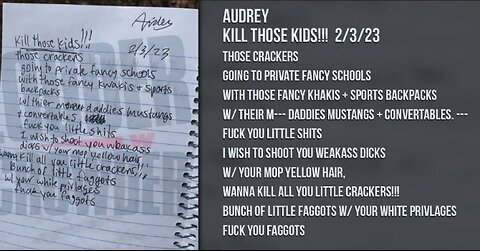 Audrey
Kill those kids!!! 2/3/23
those crackers
going to private fancy schools
with those fancy khakis + sports
backpacks
w/ thier daddies mustangs
+ convertables
fuck you little shits
I wish to shoot you weakass
dicks w/ your mop yellow hair,
wanna kill all you little crackers!!!
Bunch of little faggots
w/ your white privlages
fuck you faggots
AUDREY
KILL THOSE KIDS!!! 2/3/23
THOSE CRACKERS
GOING TO PRIVATE FANCY SCHOOLS
WITH THOSE FANCY KHAKIS + SPORTS BACKPACKS
W/ THEIR M--- DADDIES MUSTANGS + CONVERTABLES. ---
FUCK YOU LITTLE SHITS
I WISH TO SHOOT YOU WEAKASS DICKS
W/ YOUR MOP YELLOW HAIR,
WANNA KILL ALL YOU LITTLE CRACKERS!!!
BUNCH OF LITTLE FAGGOTS W/ YOUR WHITE PRIVLAGES
FUCK YOU FAGGOTS